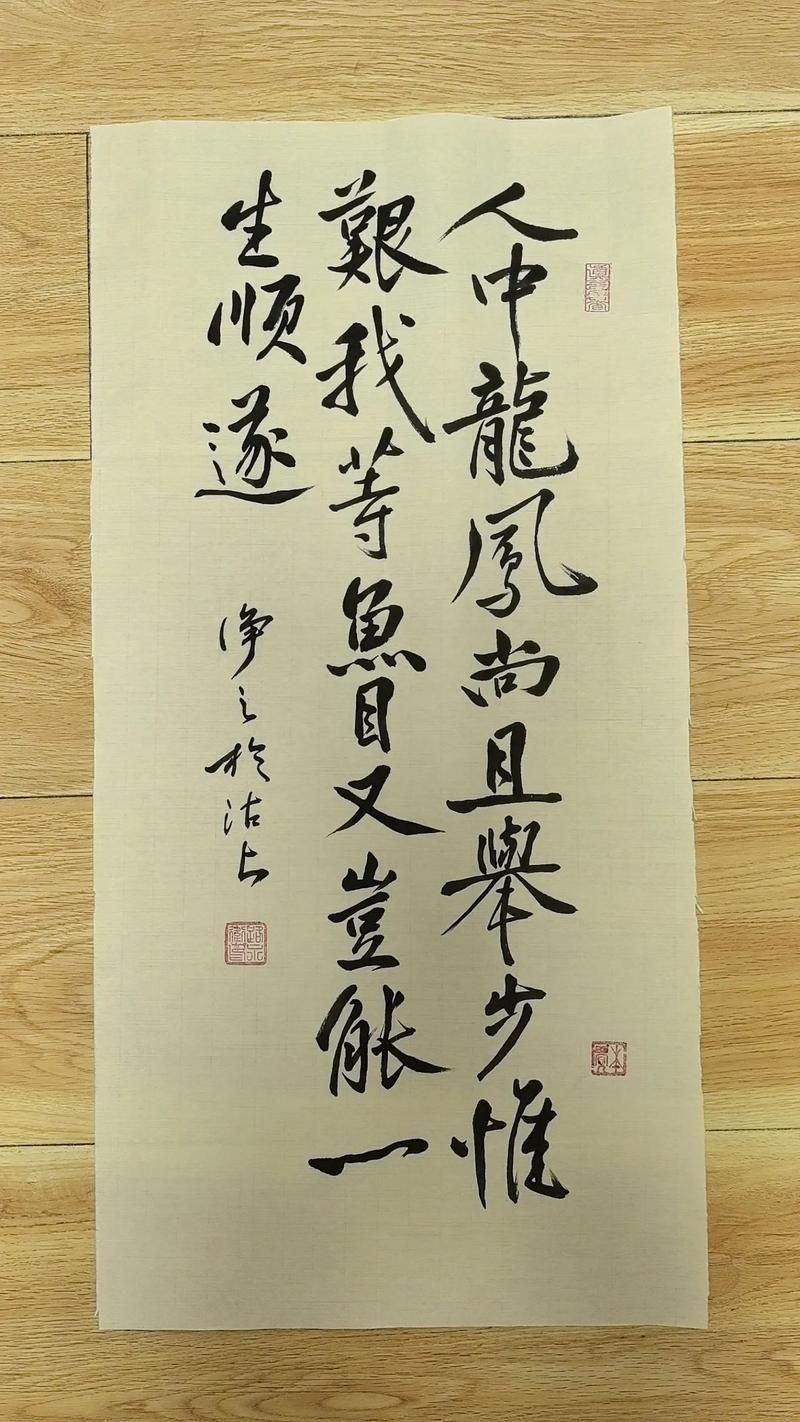 人中龍鳳尚且舉步惟
艱我等魚目又豈能一
生順遂
淨之於沽上